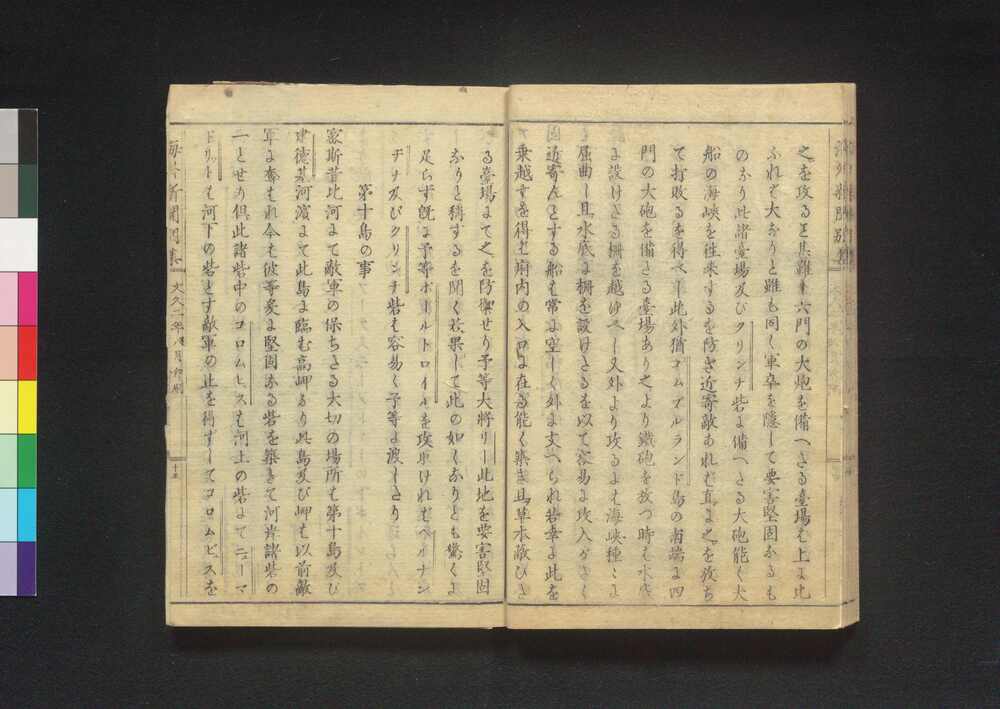 之を攻ると其難し六門の大炮を備へさる臺場は上よ比
ふれば大なりと雖も同く軍卒を隱して要害堅固なるも
のなり此諸臺場及びクリンチ砦よ備へさる大砲能く大
船の海峽を往来するを防ぎ近寄敵あれば直よ之を放ち
て打敗るを得べし此外猶コムブルランド島の南端よ四
門の大砲を備さる臺場あり之より鐵砲を放つ時も水底
よ設けさる柵を越ゆべし又外より攻るよも海峽種々よ
屈曲し且水底よ柵を設けさるを以て容易よ攻入がさく
適近寄んとする船も常よ空しく外よ支へられ若幸よ此を
乗越すを得も廟内の入口よ在る能く築き且草木蔽ひさ
る臺場よて之を防禦せり予等大將リー此地を要害堅固
なりと稱するを聞く若果して此の如くなりとも驚くよ
足らず既よ予等ポールトロイルを攻取けれバペルナン
ヂナ及びクリンチ砦も容易く予等よ渡しさり
第十島の事
密斯昔比河よて敵軍の保ちさる大切の場所も第十島及び
建德某河濱よて此島よ臨む高岬なり此島及び岬も以前敵
軍よ奪もれ今も彼等爰よ堅固なる砦を築きて河岸諸砦の
一とせり俱此諸砦中のコロムヒスも河上の砦よてニューマ
ドリットも河下の砦とす敵軍の止を得ずしてコロムビュスを
海外新聞別集
文久二年八月印刷